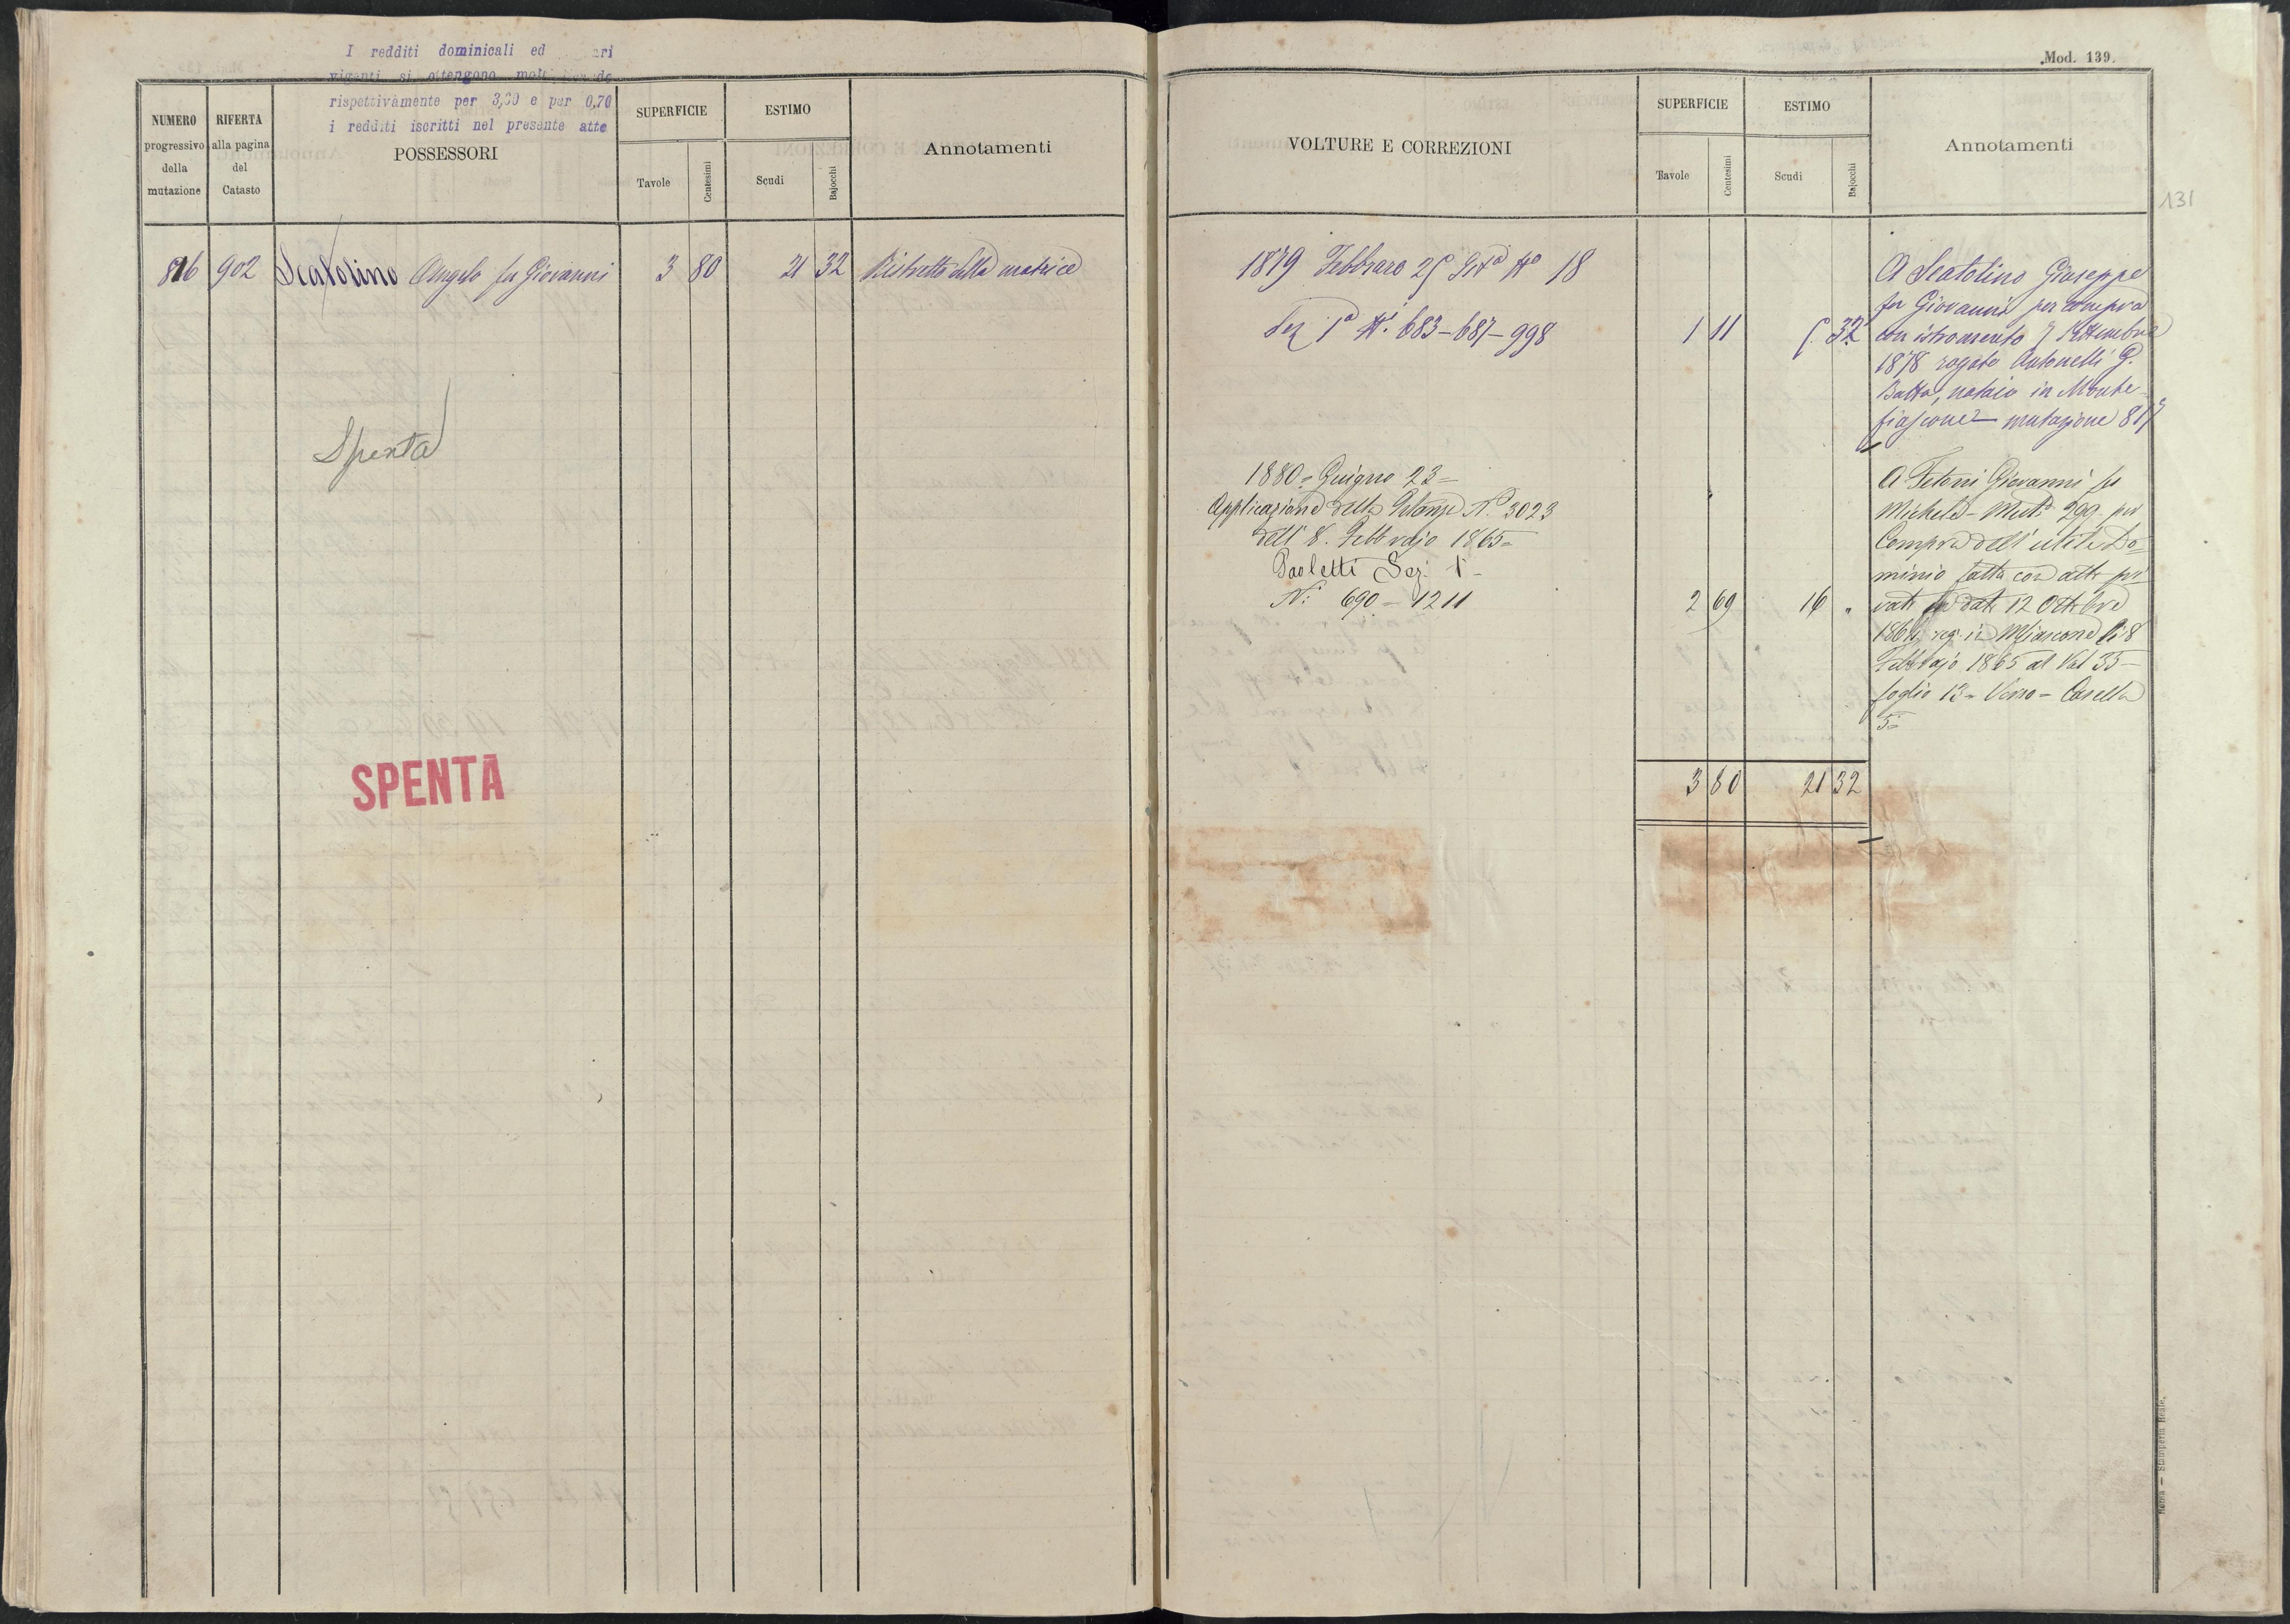 I redditi dominicali ed
vigenti si ottengono
rispettivamente per 3,30 e per 0,70
i redditi iscritti nel presente atto
NUMERO progressivo della mutazione
RIFERTA alla pagina del Catasto
POSSESSORI
SUPERFICIE
Tavole
Centesimi
ESTIMO
Scudi
Bajocchi
Annotamenti
816 902 Scatolino Angelo fu Giovanni 3 80 21 32 Ristretto della matrice
Spenta
SPENTA
Mod. 139.
VOLTURE E CORREZIONI
SUPERFICIE
Tavole
Centesimi
ESTIMO
Scudi
Bajocchi
Annotamenti
131
1879 Febbraro 25 No 18
Sez 1a Ni 683-687-998 1 11 5 32
A Scatolino Giuseppe
fu Giovanni per compra
con istromento 7 Settembre
1878 rogato Antonelli G.
Batta, notaio in Monte-
fiascone - mutazione 817
1880= Giugno 23=
Applicazione della N. 3023
dell' 8. Febbrajo 1865=
Paoletti Sez. 1a
Ni 690=1211 2 69 16 "
A Giovanni fu
Michele - Mut. 299. per
Compra dell' utile Do=
minio fatta con atto pri
vato in data 12 Ottobre
1864 reg. in Mfiascone li 8
Febbrajo 1865 al Vol 35-
foglio 13= Verso= Casella
5=
3 80 21 32
Roma — Stamperia Reale.